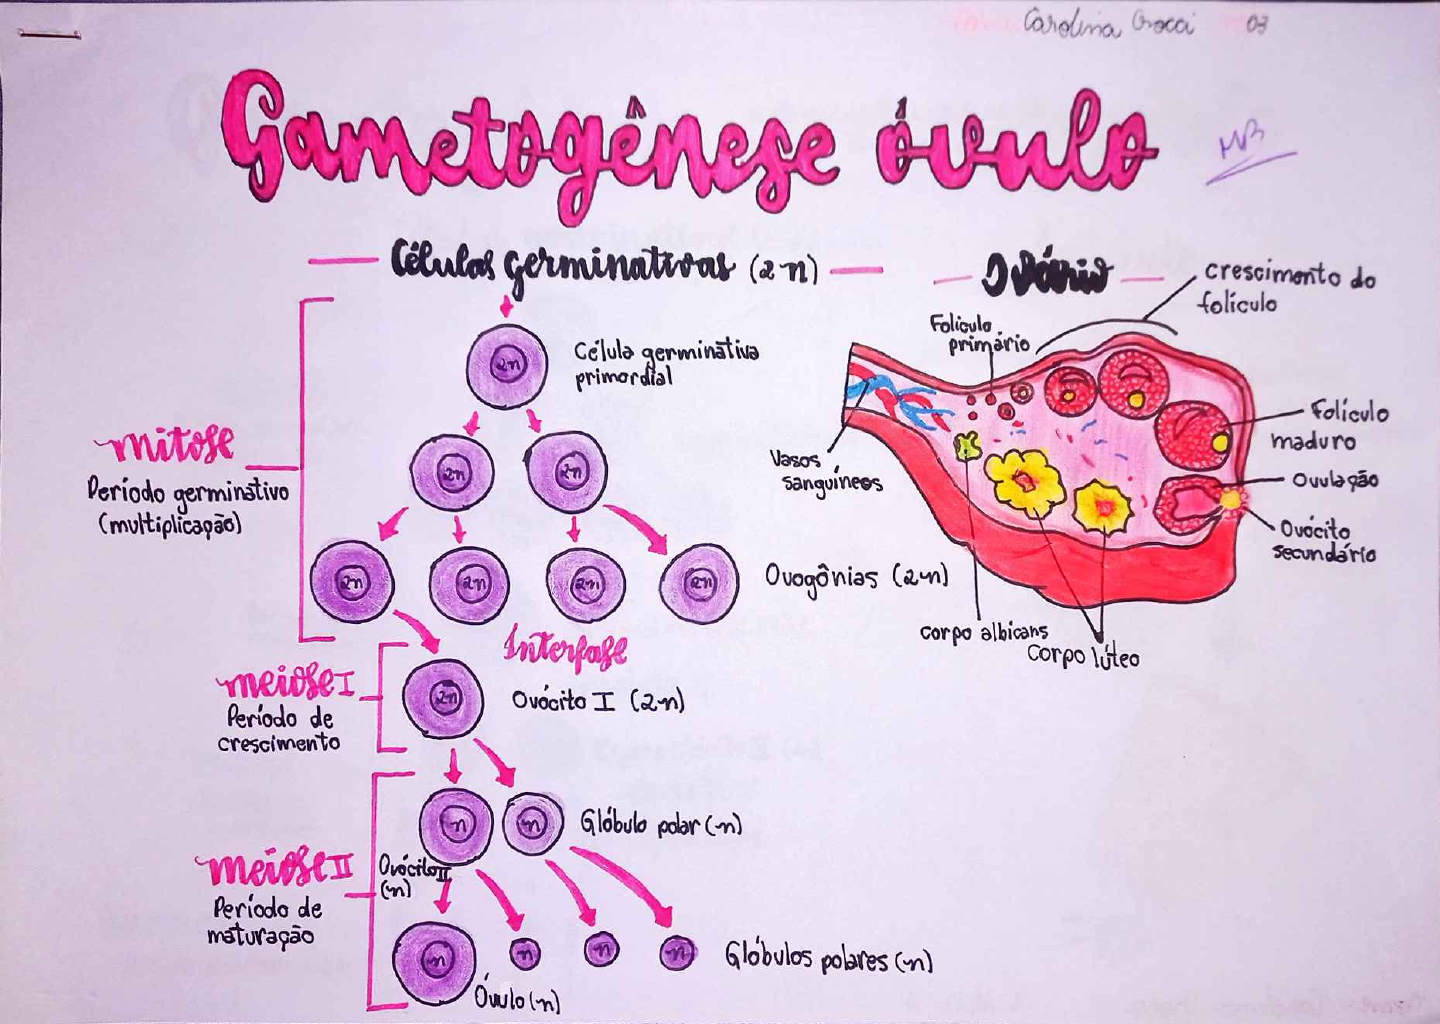 Carolina Crocci 03
Gametogênese óvulo
MB
Células germinativas (2n)
Célula germinativa
primordial
2n
2n
2n
mitose
Período germinativo
(multiplicação)
2n
2n
2n
2n
Ovogônias (2n)
Interfase
meiose I
Período de
crescimento
2n
Ovócito I (2n)
n
n
Glóbulo polar (n)
meiose II
Ovócito II
(n)
Período de
maturação
n
n
n
n
Glóbulos polares (n)
Óvulo (n)
Ovário
crescimento do
folículo
Folículo
primário
Vasos
sanguíneos
Folículo
maduro
Ovulação
Ovócito
secundário
corpo albicans
Corpo lúteo